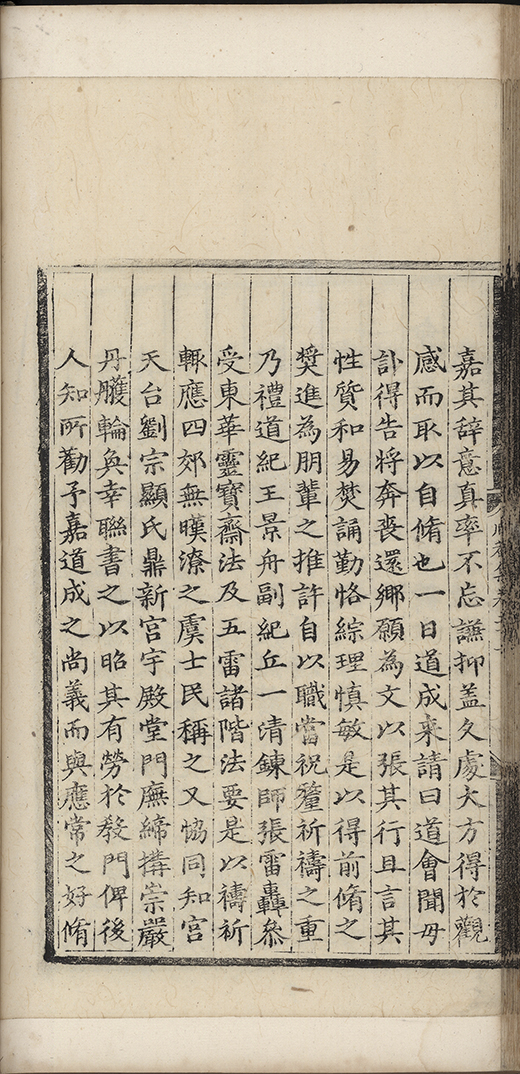 嘉其辞意真率不忘謙抑盖久處大方得於觀
感而取以自脩也一日道成来請曰道會聞母
訃得告将奔喪還鄉願為文以張其行且言其
性質和易焚誦勤恪綜理慎敏是以得前脩之
奨進為朋輩之推許自以職當祝釐祈禱之重
乃禮道紀王景舟副紀丘一清錬師張雷轟叅
受東華靈寶齋法及五雷諸階法要是以禱祈
輙應四郊無暵潦之虞士民稱之又恊同知宮
天台劉宗顯氏鼎新宮宇殿堂門廡締搆崇嚴
丹雘輪奐幸聯書之以昭其有勞於教門俾後
人知所勸予嘉道成之尚義而與應常之好脩